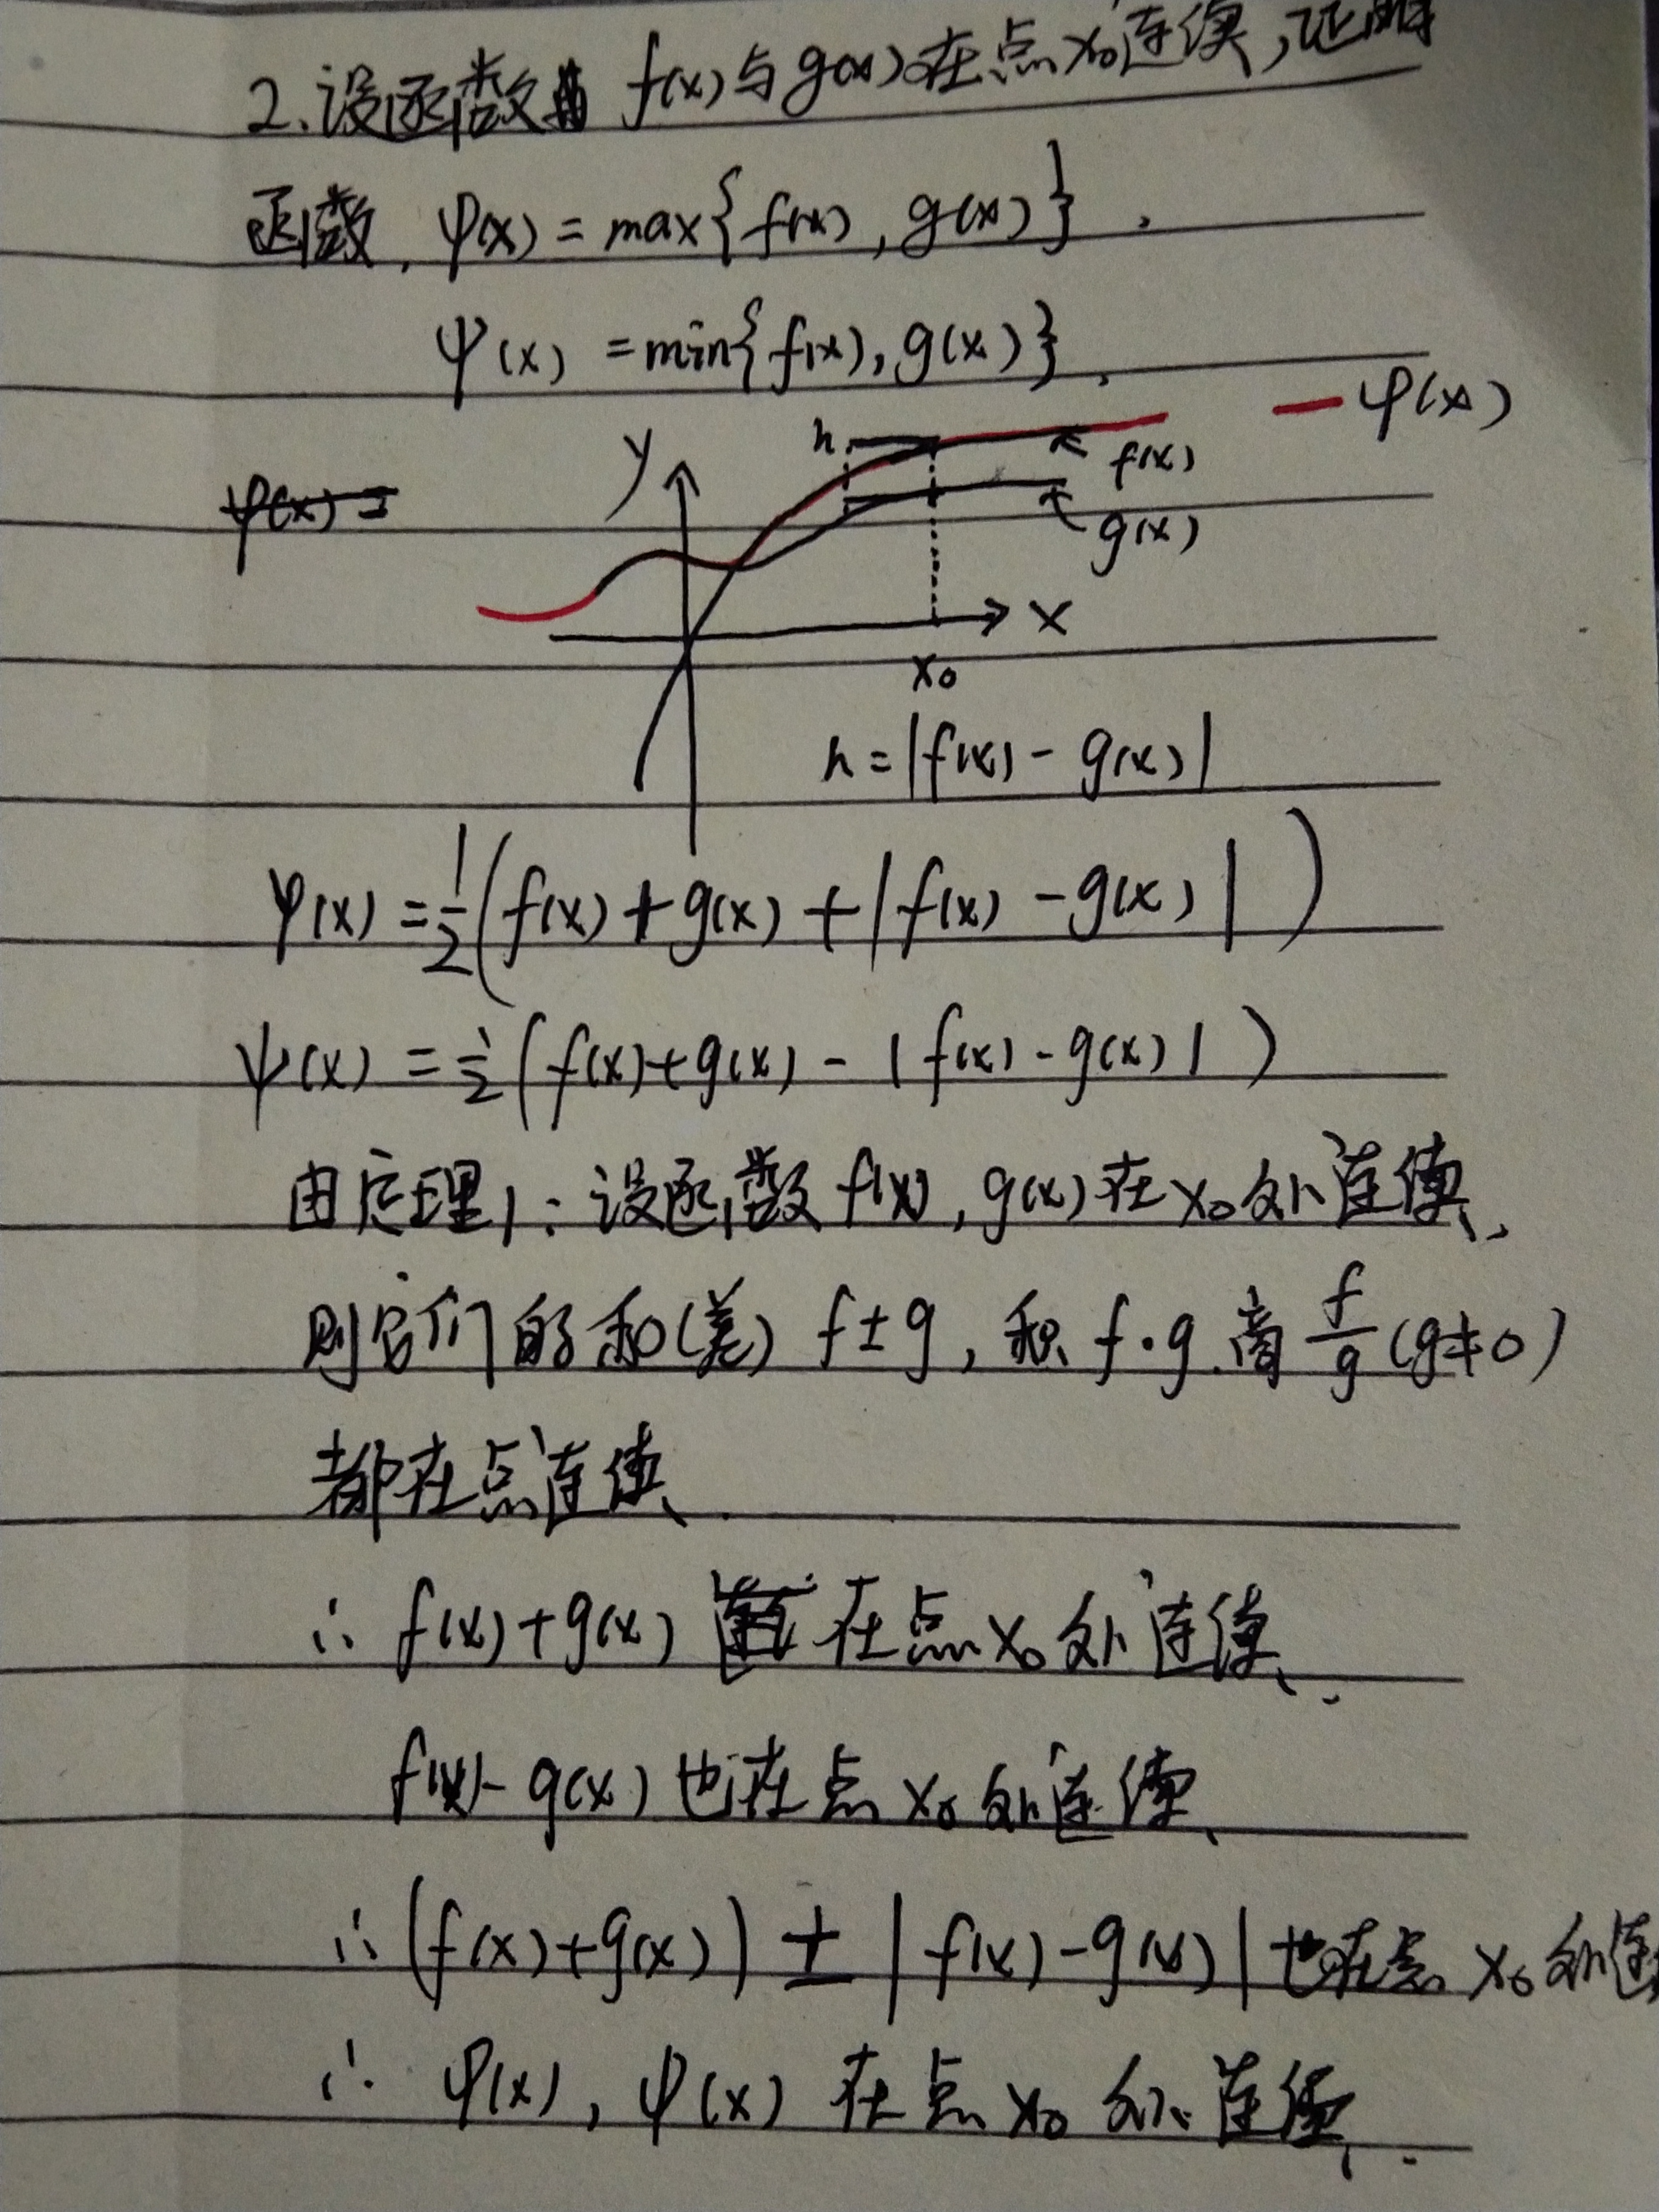 2.设函数 f(x)与g(x)在点x₀连续,证明
函数, φ(x)=max{f(x),g(x)}.
ψ(x)=min{f(x),g(x)}.
— φ(x)
φ(x)=
y
h
f(x)
g(x)
x
x₀
h=|f(x)-g(x)|
φ(x)=1/2(f(x)+g(x)+|f(x)-g(x)|)
ψ(x)=1/2(f(x)+g(x)-|f(x)-g(x)|)
由定理1:设函数f(x),g(x)在x₀处连续,
则它们的和(差) f±g,积 f·g.商 f/g (g≠0)
都在点连续.
∴ f(x)+g(x) 在点x₀处连续.
f(x)-g(x)也在点x₀处连续.
∴(f(x)+g(x))±|f(x)-g(x)|也在点x₀处连
∴ φ(x),ψ(x)在点x₀处连续.